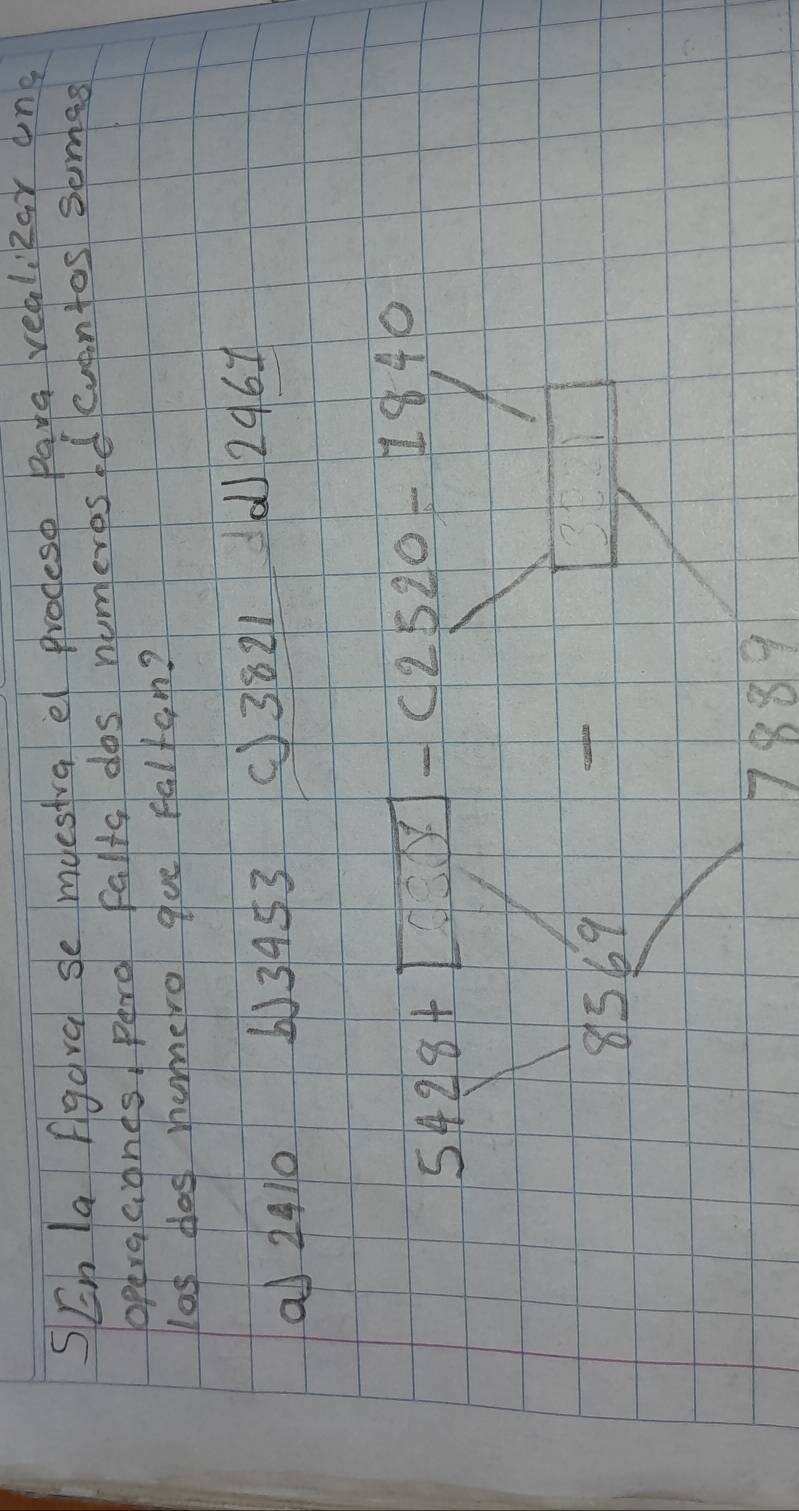 5 En la figura se muestra el proceso para realizar una
operaciones, pero falta dos numeros. ¿ cuantos sumas
los dos numero que faltan?
a) 2410 b) 3453 c) 3821 d) 2461
5428 + - (2520 - 1840
8569 -
7889